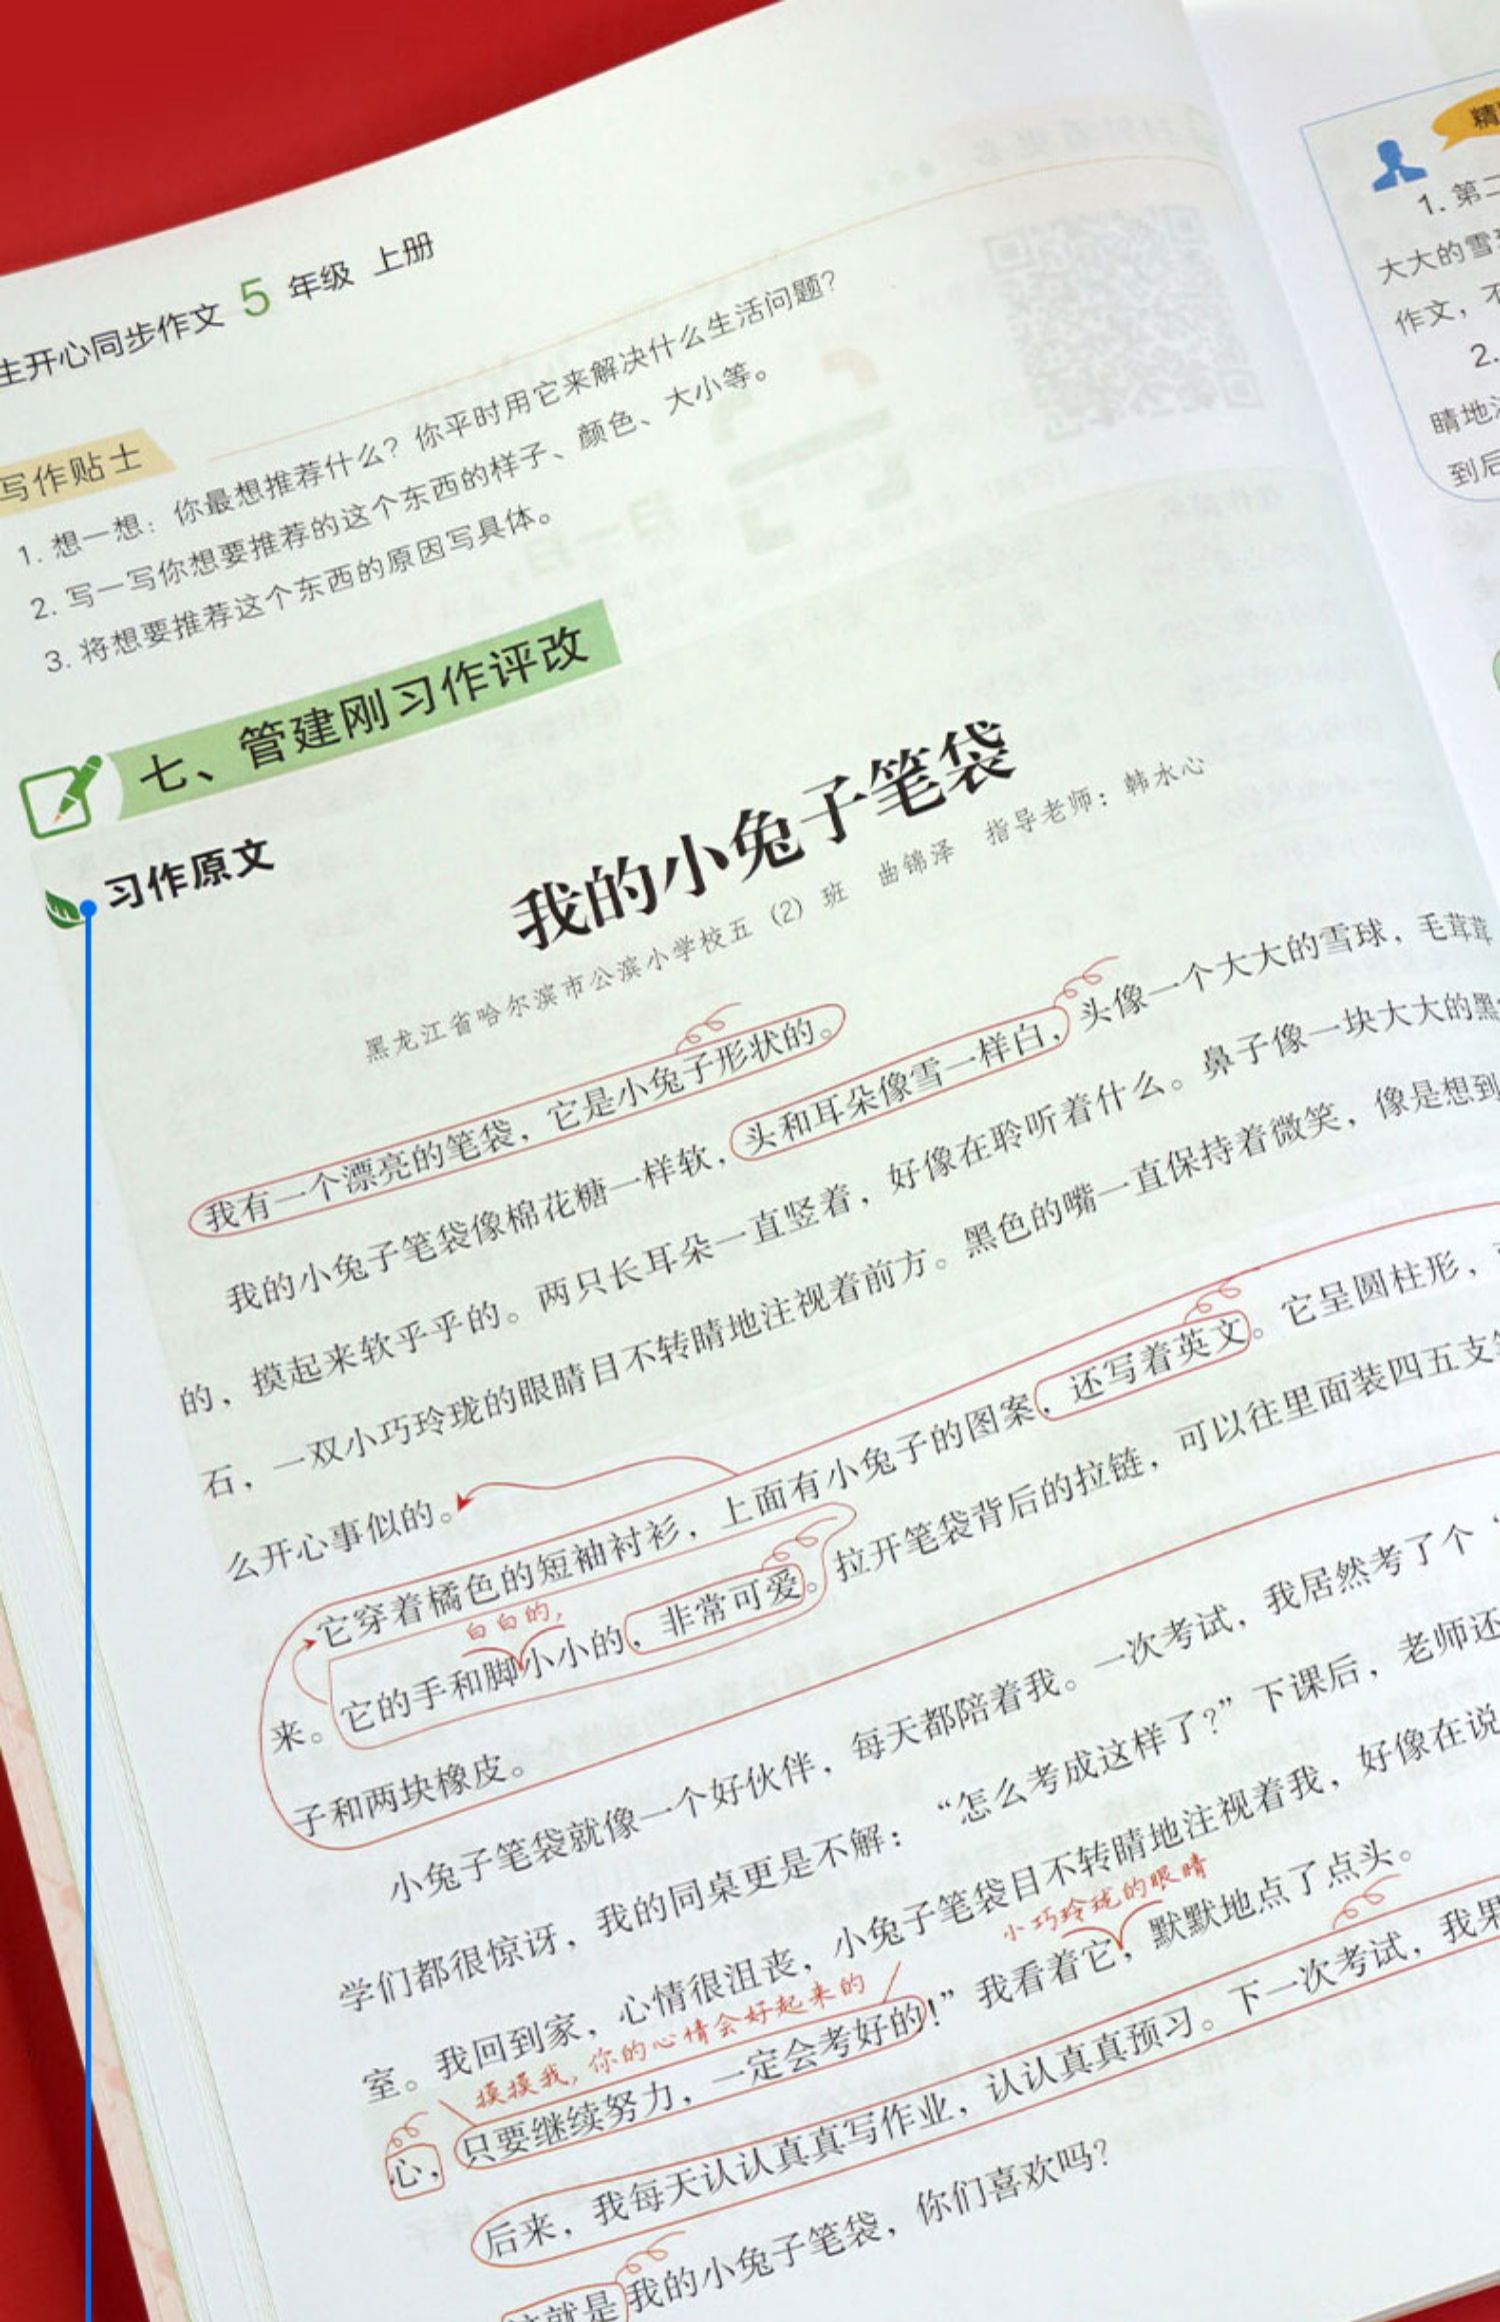 生开心同步作文 5 年级 上册
写作贴士
1. 想一想：你最想推荐什么？你平时用它来解决什么生活问题？
2. 写一写你想要推荐的这个东西的样子、颜色、大小等。
3. 将想要推荐这个东西的原因写具体。
七、管建刚习作评改
习作原文
我的小兔子笔袋
黑龙江省哈尔滨市公滨小学校五（2）班 曲锦泽 指导老师：韩水心
我有一个漂亮的笔袋，它是小兔子形状的。
我的小兔子笔袋像棉花糖一样软，头和耳朵像雪一样白，头像一个大大的雪球，毛茸茸
的，摸起来软乎乎的。两只长耳朵一直竖着，好像在聆听着什么。鼻子像一块大大的黑
石，一双小巧玲珑的眼睛目不转睛地注视着前方。黑色的嘴一直保持着微笑，像是想到
么开心事似的。
它穿着橘色的短袖衬衫，上面有小兔子的图案，还写着英文。它呈圆柱形，
白白的，
来。它的手和脚小小的，非常可爱。拉开笔袋背后的拉链，可以往里面装四五支
子和两块橡皮。
小兔子笔袋就像一个好伙伴，每天都陪着我。一次考试，我居然考了个“
学们都很惊讶，我的同桌更是不解：“怎么考成这样了？”下课后，老师还
室。我回到家，心情很沮丧，小兔子笔袋目不转睛地注视着我，好像在说
小巧玲珑的眼睛
摸摸我，你的心情会好起来的
心，只要继续努力，一定会考好的！”我看着它，默默地点了点头。
后来，我每天认认真真写作业，认认真真预习。下一次考试，我果
这就是我的小兔子笔袋，你们喜欢吗？
精
1. 第二
大大的雪球
作文，不
2.
睛地注
到后